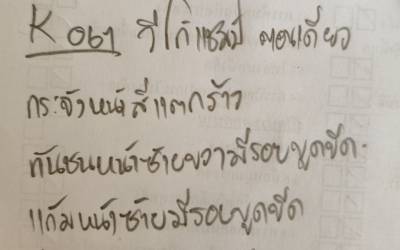 K 061 วีโก้แชมป์ ตอนเดียว
กระจังหน้าสี่แตกร้าว
กันชนหน้าซ้ายขวามีรอยขูดขีด.
แก้มหน้าซ้ายมีรอยขูดขีด